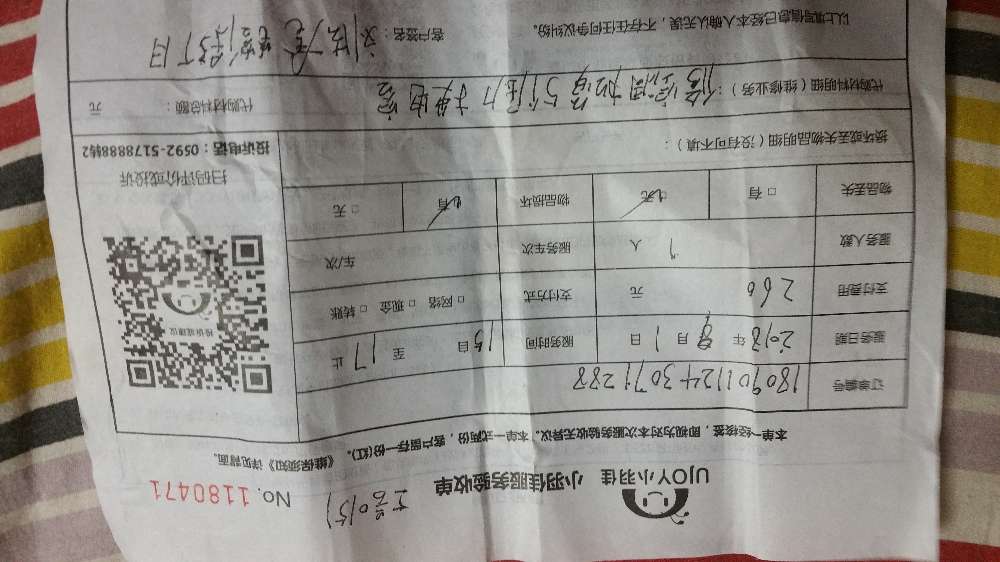 UJOY小羽佳 小羽佳服务验收单
No. 1180471
本单一经核签，即视为对本次服务验收无异议。本单一式两份，客户留存一份(红)。《维保须知》详见背面。
订单编号 180901124307128 8
服务日期 2018 年 9 月 1 日 服务时间 15 自 至 17 止
支付费用 260 元 支付方式 □ 网络 □ 现金 □ 转账
服务人数 1 人 服务车次 车/次
物品丢失 □ 有 □ 无 物品损坏 □ 有 □ 无
投诉或建议
扫码评价或投诉
投诉电话：0592-5178888转2
损坏或丢失物品明细（没有可不填）：
代购材料明细（维修业务）：
代购材料总额： 元
以上填写信息已经本人确认无误，不存在任何争议纠纷。
客户签名：